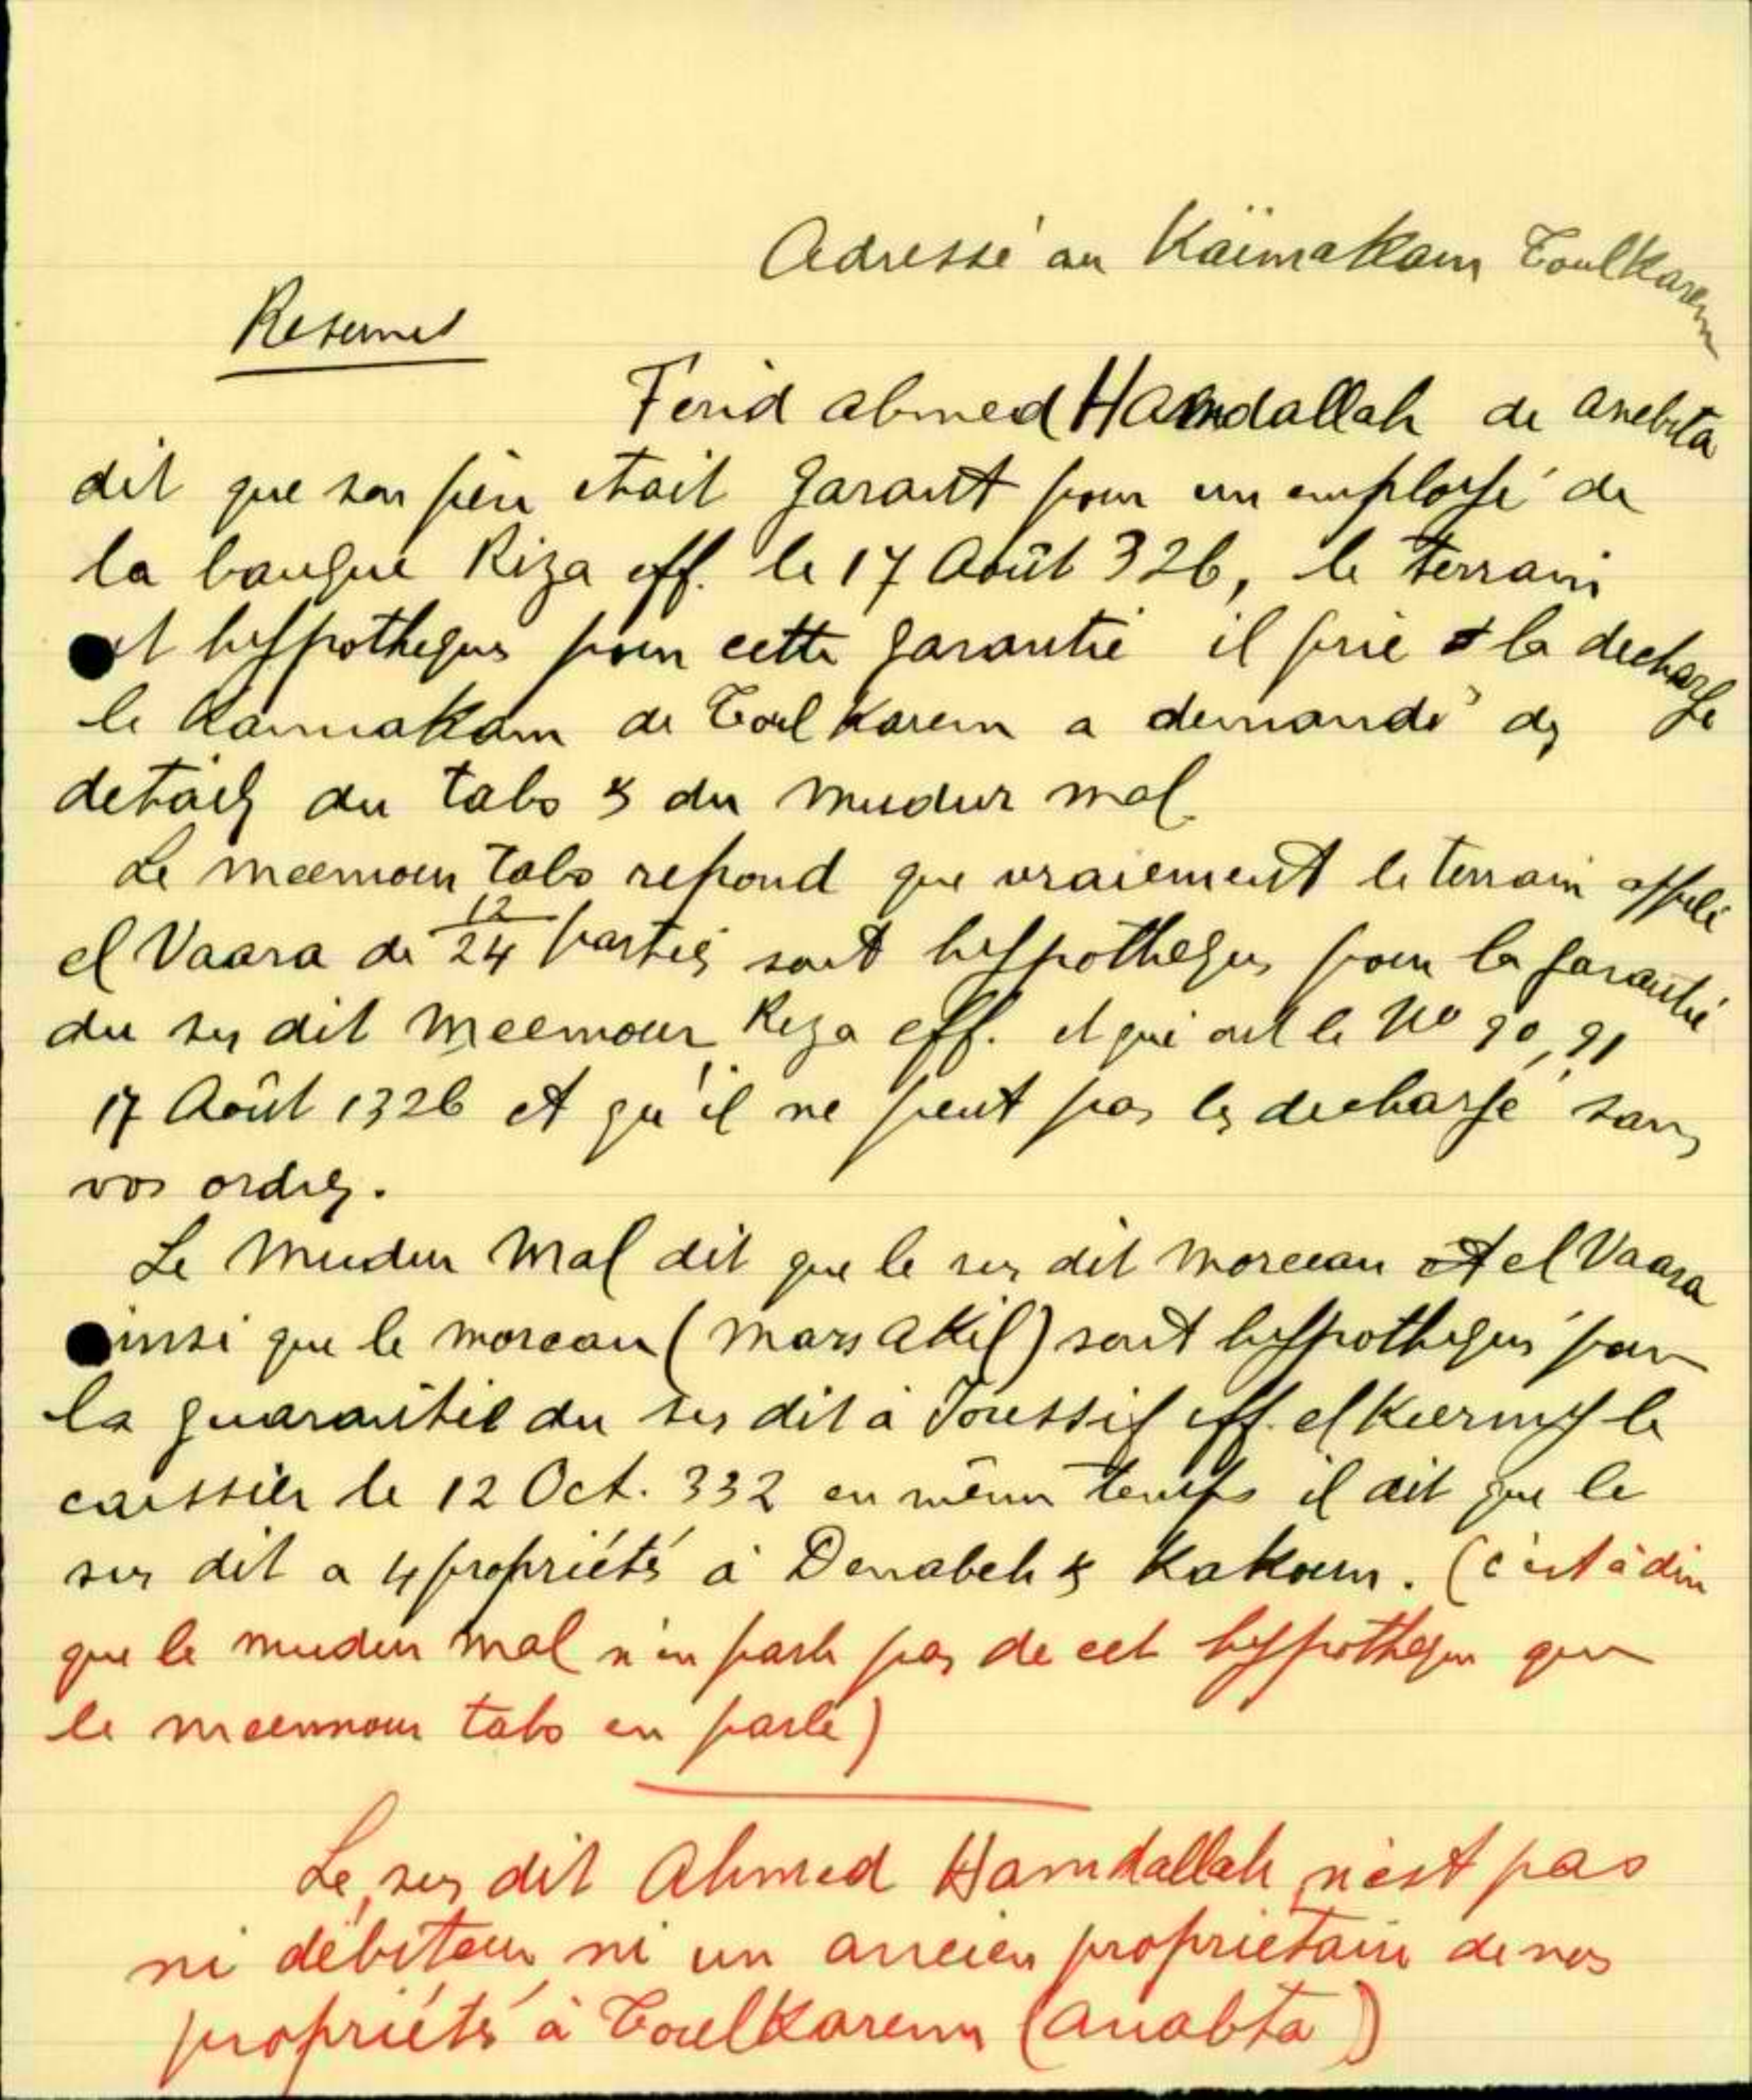 Adressé au Kaïmakam Toulkarem
Resumes
Ferid Ahmed Hamdallah de Anebta
dit que son père etait garant pour un employé de
la banque Riza eff. le 17 Août 326, le terrain
est hyppotheques pour cette garantie il prie la decharge
le Kaimakam de Toul Karem a demandé des
details du tabo & du mudur mal
Le meemour tabo repond que vraiement le terrain appelé
el Vaara de 12/24 parties sont hyppotheques pour la garantie
du sus dit meemour Riza eff. et qui ont le No 90, 91
17 Août 1326 et qu'il ne peut pas les decharge sans
vos ordres.
Le mudur mal dit que le sus dit morceau el Vaara
ainsi que le morceau (mars akil) sont hyppotheques pour
la guarantie du sus dit à Youssif eff. el Keermy le
caissier le 12 Oct. 332 en même temps il dit que le
sus dit a 4 propriétés à Denabeh & Kakoun. (c'est à dire
que le mudur mal n'en parle pas de cet hyppotheque que
le meemour tabo en parle)
Le sus dit Ahmed Hamdallah n'est pas
ni débiteur ni un ancien proprietaire de nos
propriétés à Toulkarem (Anabta)